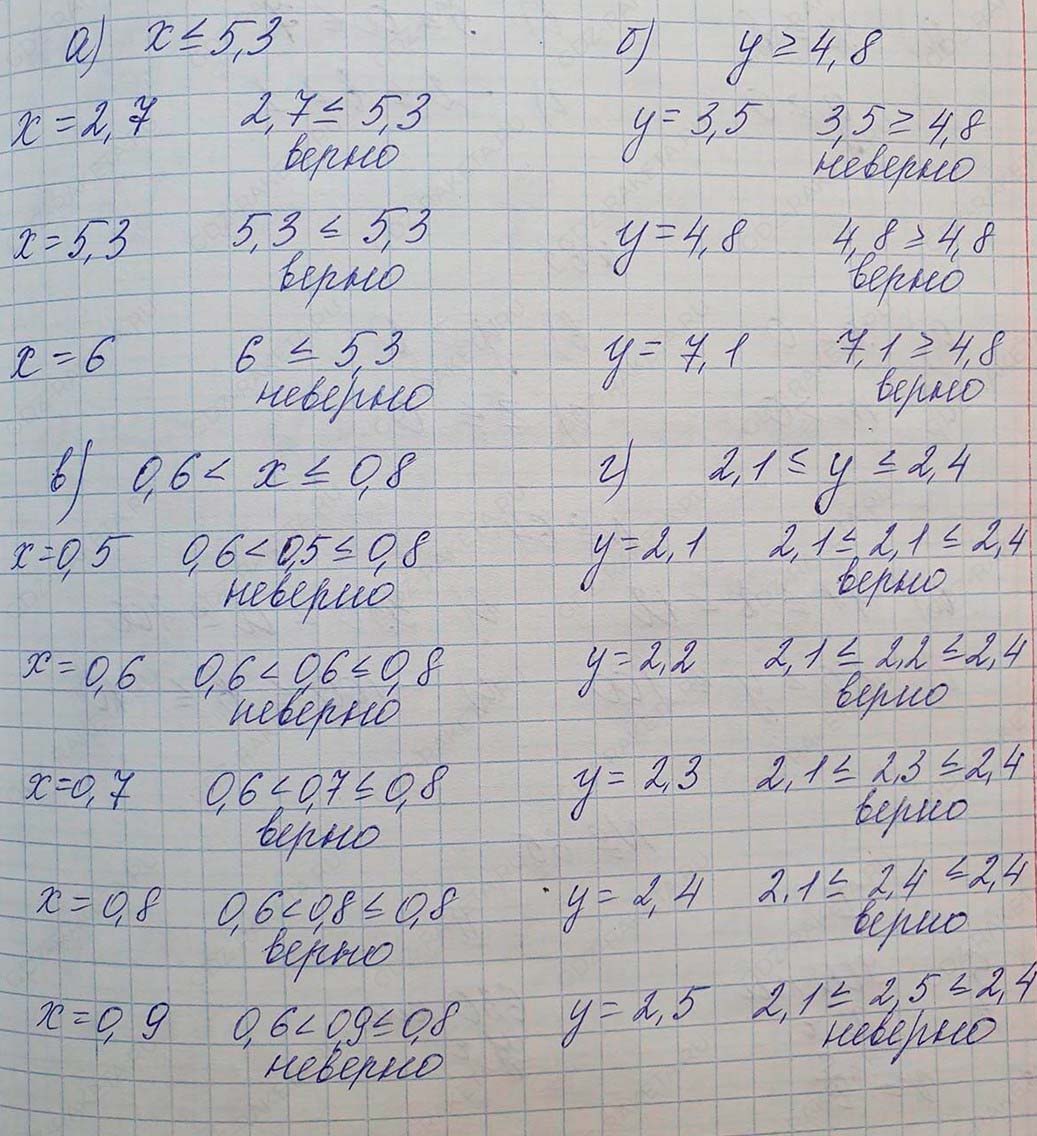 а) x ≤ 5,3
x = 2,7 2,7 ≤ 5,3
верно
x = 5,3 5,3 ≤ 5,3
верно
x = 6 6 ≤ 5,3
неверно
б) y ≥ 4,8
y = 3,5 3,5 ≥ 4,8
неверно
y = 4,8 4,8 ≥ 4,8
верно
y = 7,1 7,1 ≥ 4,8
верно
в) 0,6 < x ≤ 0,8
x = 0,5 0,6 < 0,5 ≤ 0,8
неверно
x = 0,6 0,6 < 0,6 ≤ 0,8
неверно
x = 0,7 0,6 < 0,7 ≤ 0,8
верно
x = 0,8 0,6 < 0,8 ≤ 0,8
верно
x = 0,9 0,6 < 0,9 ≤ 0,8
неверно
г) 2,1 ≤ y ≤ 2,4
y = 2,1 2,1 ≤ 2,1 ≤ 2,4
верно
y = 2,2 2,1 ≤ 2,2 ≤ 2,4
верно
y = 2,3 2,1 ≤ 2,3 ≤ 2,4
верно
y = 2,4 2,1 ≤ 2,4 ≤ 2,4
верно
y = 2,5 2,1 ≤ 2,5 ≤ 2,4
неверно